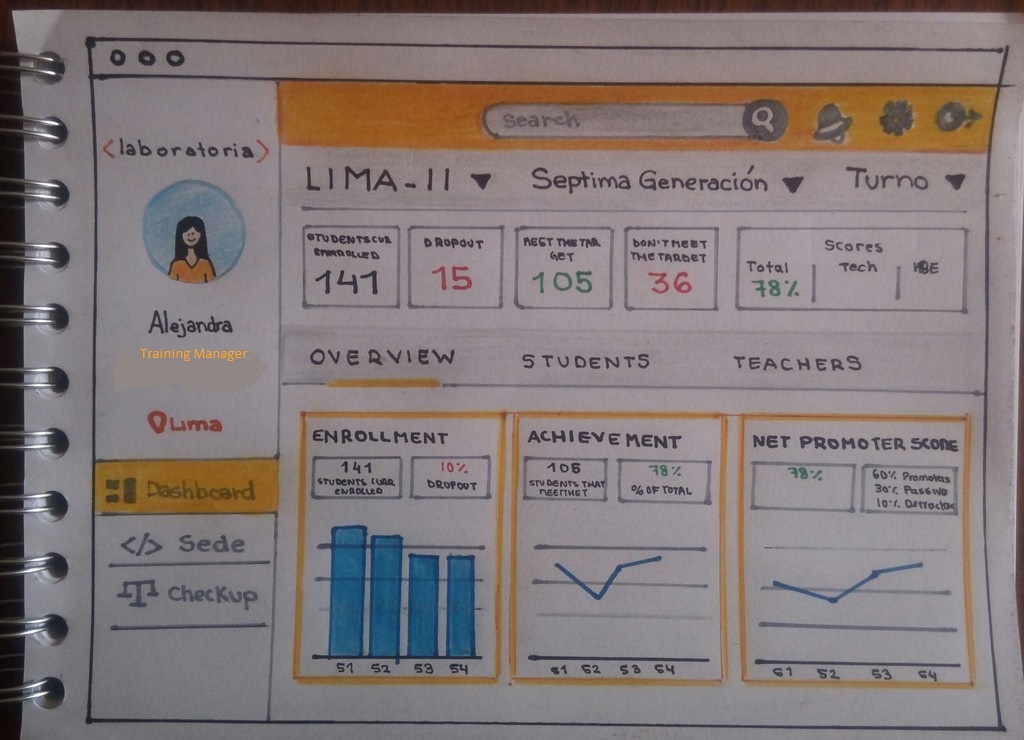 <laboratoria>
Alejandra
Training Manager
Lima
Dashboard
</> Sede
Checkup
Search
LIMA-II
Septima Generación
Turno
STUDENTS CUR
ENROLLED
141
DROPOUT
15
MEET THE TAR
GET
105
DON'T MEET
THE TARGET
36
Scores
Total
78%
Tech
OVERVIEW
STUDENTS
TEACHERS
ENROLLMENT
141
STUDENTS CURR
ENROLLED
10%
DROPOUT
S1 S2 S3 S4
ACHIEVEMENT
105
STUDENTS THAT
78%
% OF TOTAL
S1 S2 S3 S4
NET PROMOTER SCORE
78%
60% Promotas
30% Passive
10% Detractas
S1 S2 S3 S4